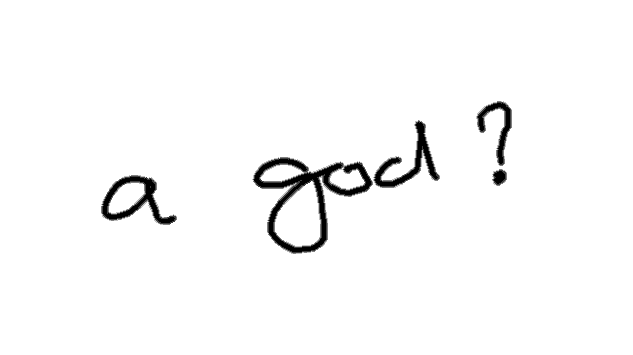 a god?